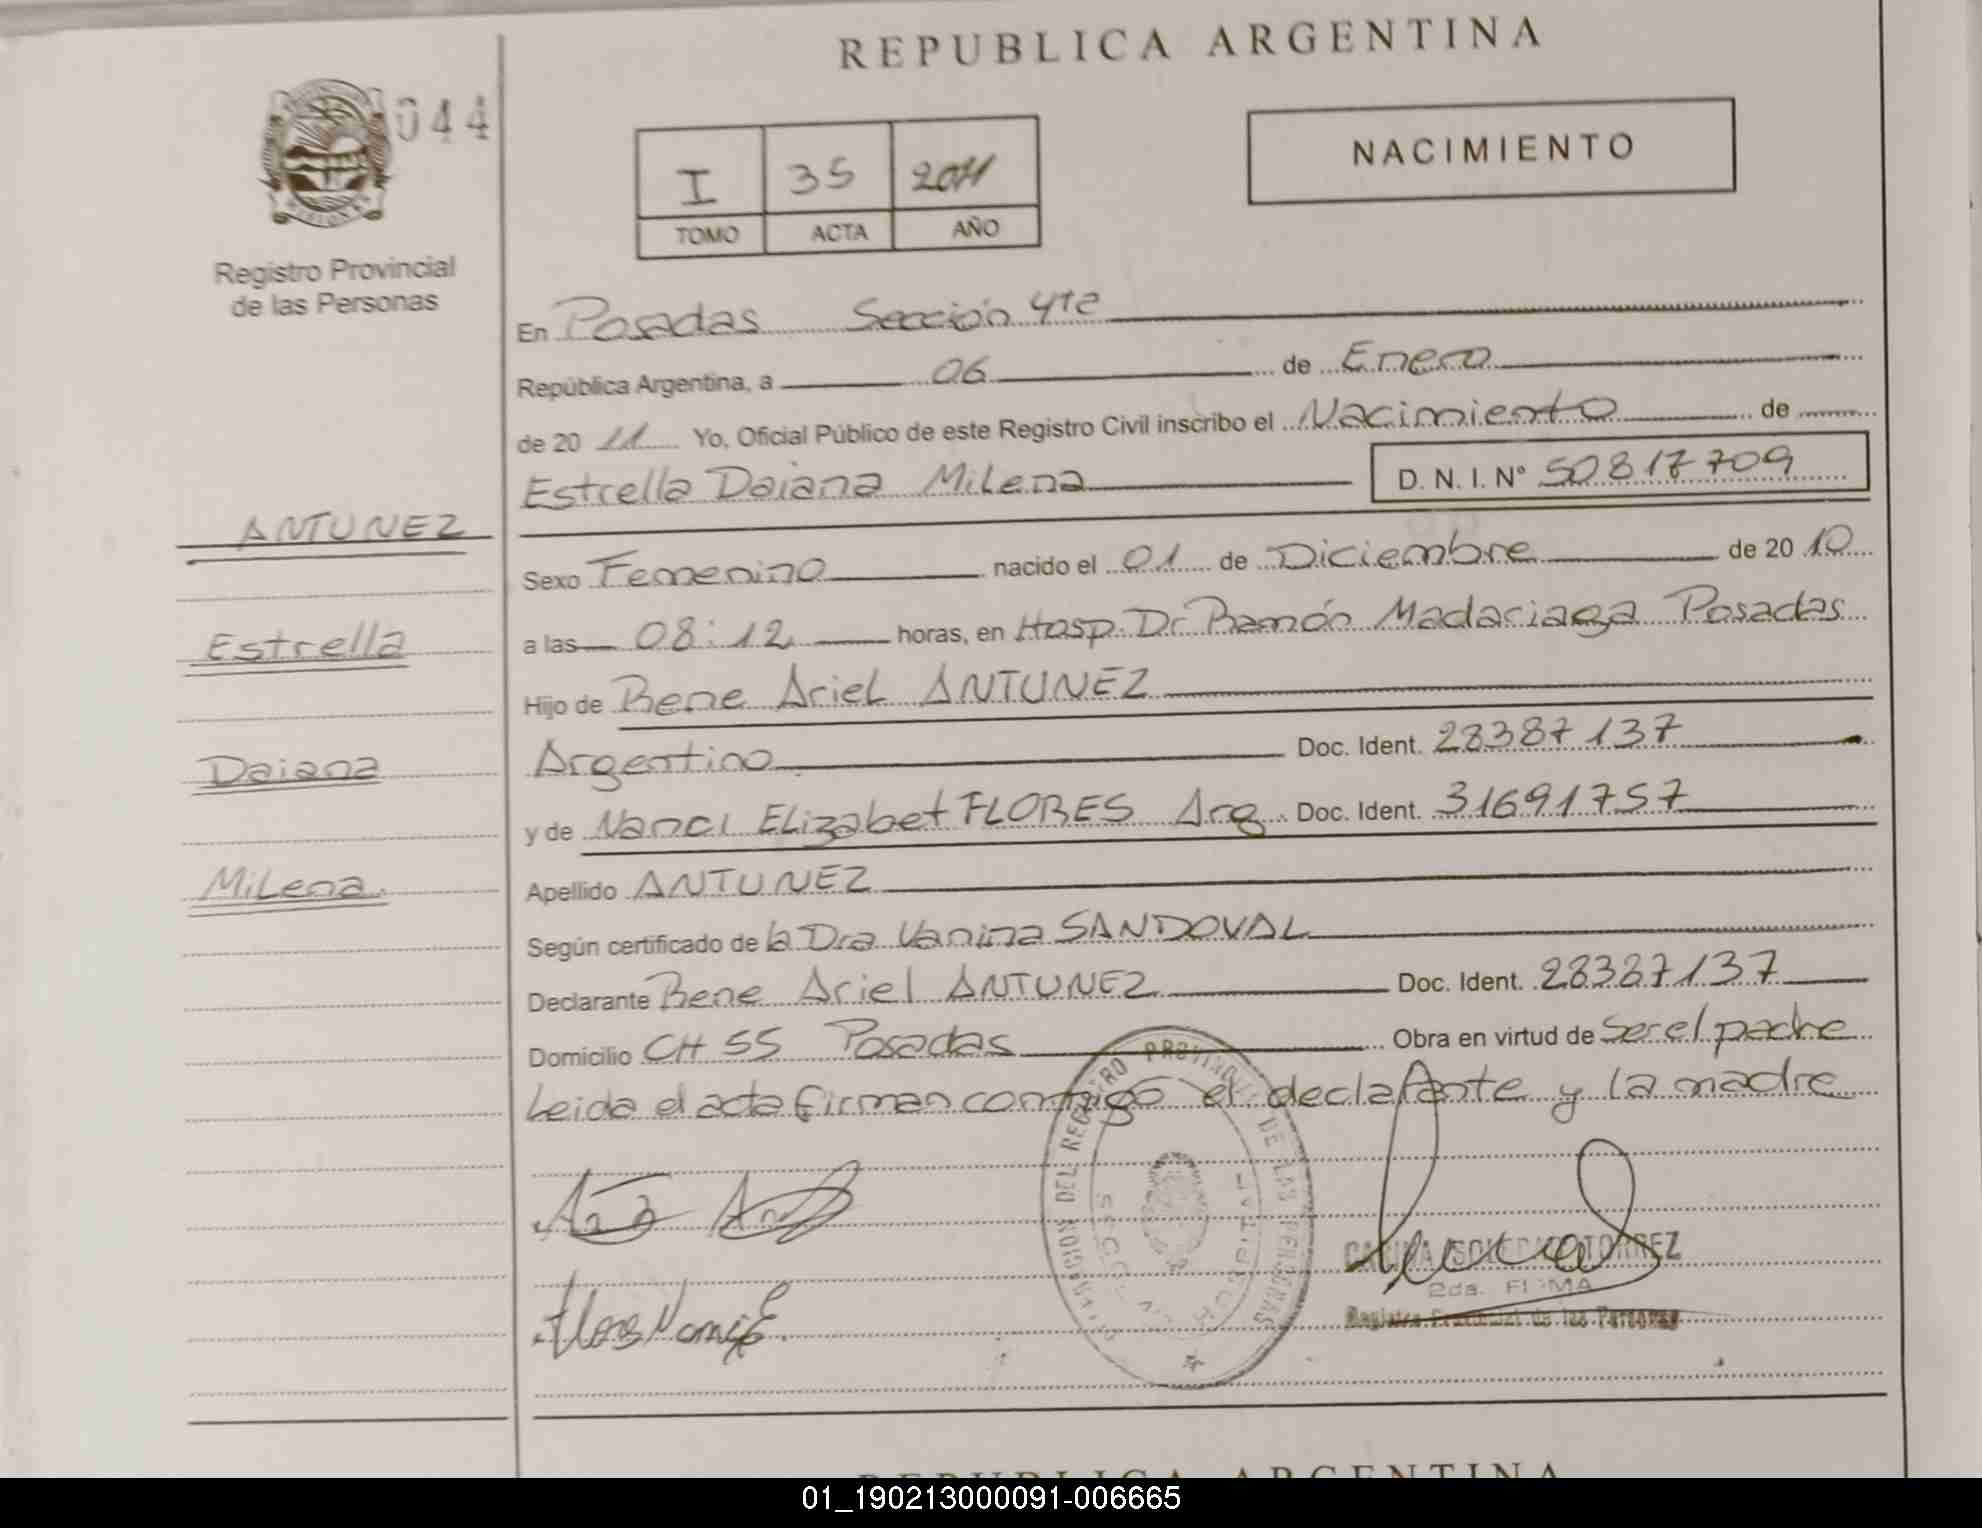 REPUBLICA ARGENTINA
044
I 35 2011
TOMO ACTA AÑO
NACIMIENTO
Registro Provincial
de las Personas
En Posadas Sección 4ta
República Argentina, a 06 de Enero
de 20 11 Yo, Oficial Público de este Registro Civil inscribo el Nacimiento de
Estrella Daiana Milena D. N. I. Nº 50817709
ANTUNEZ
Estrella
Daiana
Milena
Sexo Femenino nacido el 01 de Diciembre de 20 10
a las 08:12 horas, en Hosp. Dr Ramón Madariaga Posadas
Hijo de Rene Ariel ANTUNEZ
Argentino Doc. Ident. 28387137
y de Nanci Elizabet FLORES Arg. Doc. Ident. 31691757
Apellido ANTUNEZ
Según certificado de la Dra Vanina SANDOVAL
Declarante Rene Ariel ANTUNEZ Doc. Ident. 28387137
Domicilio CH 55 Posadas Obra en virtud de Ser el padre
Leida el acta firman conmigo el declarante y la madre
DEL REGISTRO PROVINCIAL DE LAS PERSONAS
CARINA SOLEDAD TORREZ
2da. FIRMA
Registro Provincial de las Personas
Flores Nanci E.
REPUBLICA ARGENTINA
01_190213000091-006665